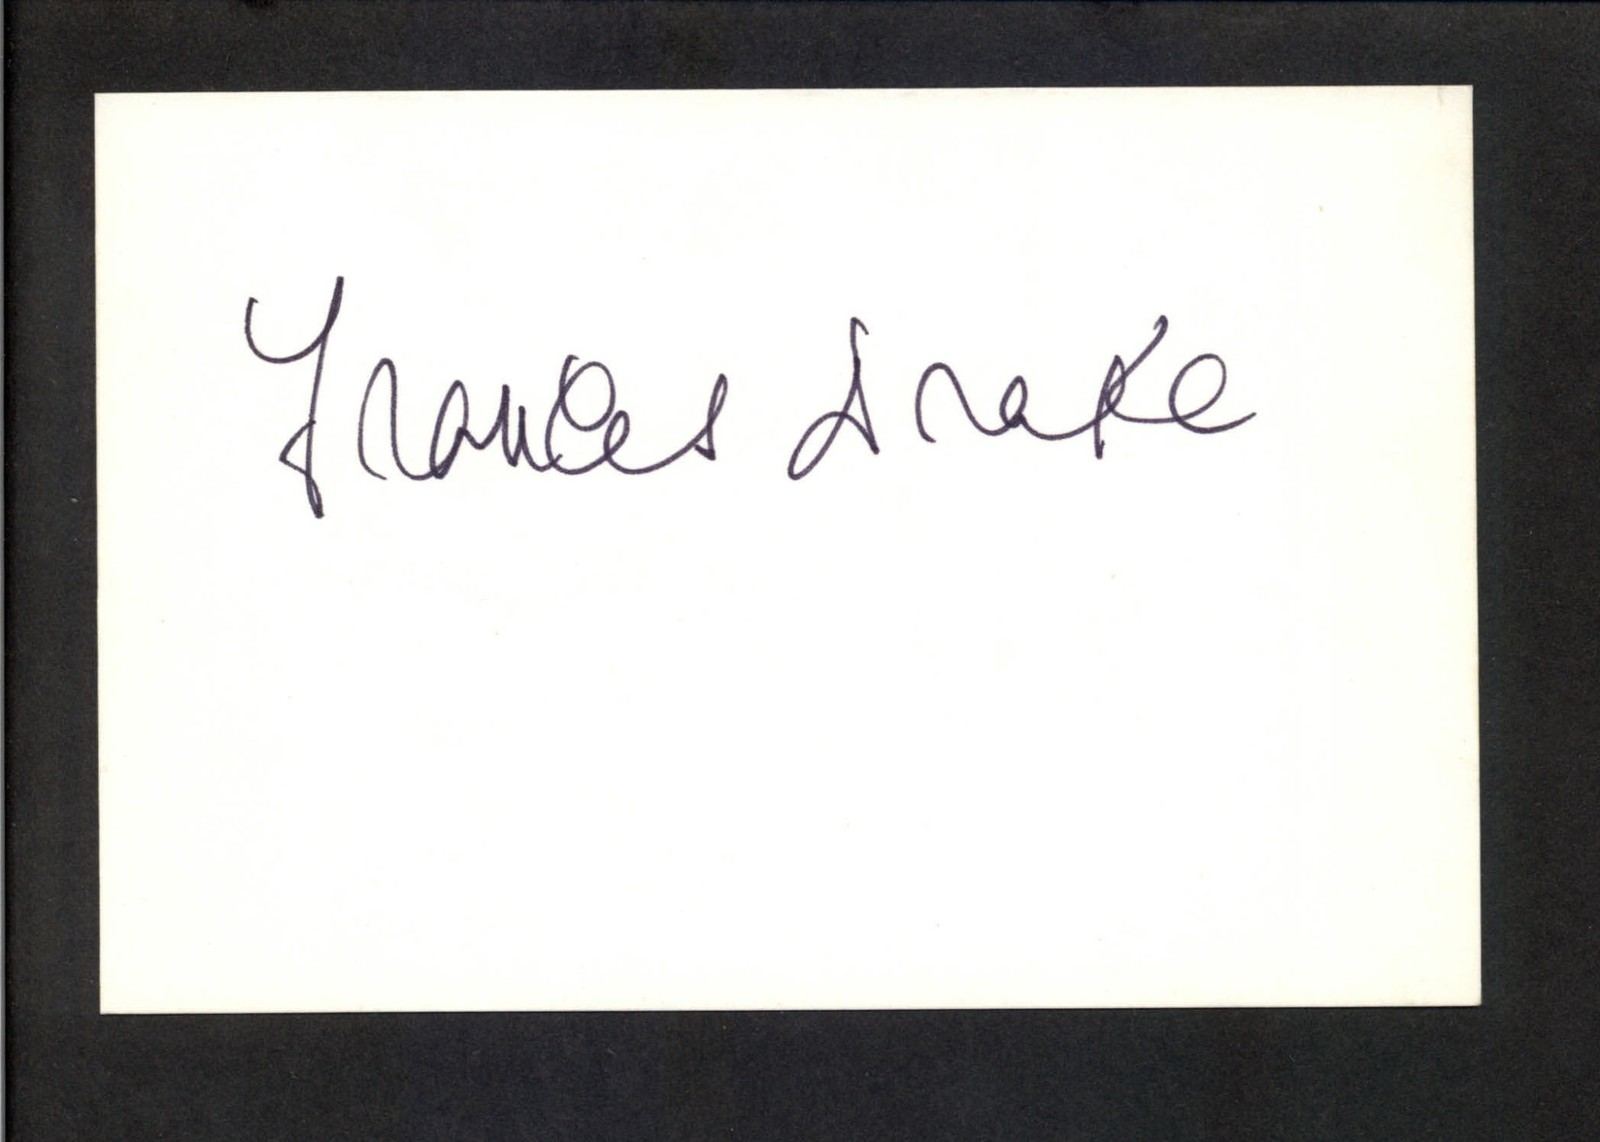 Frances Drake